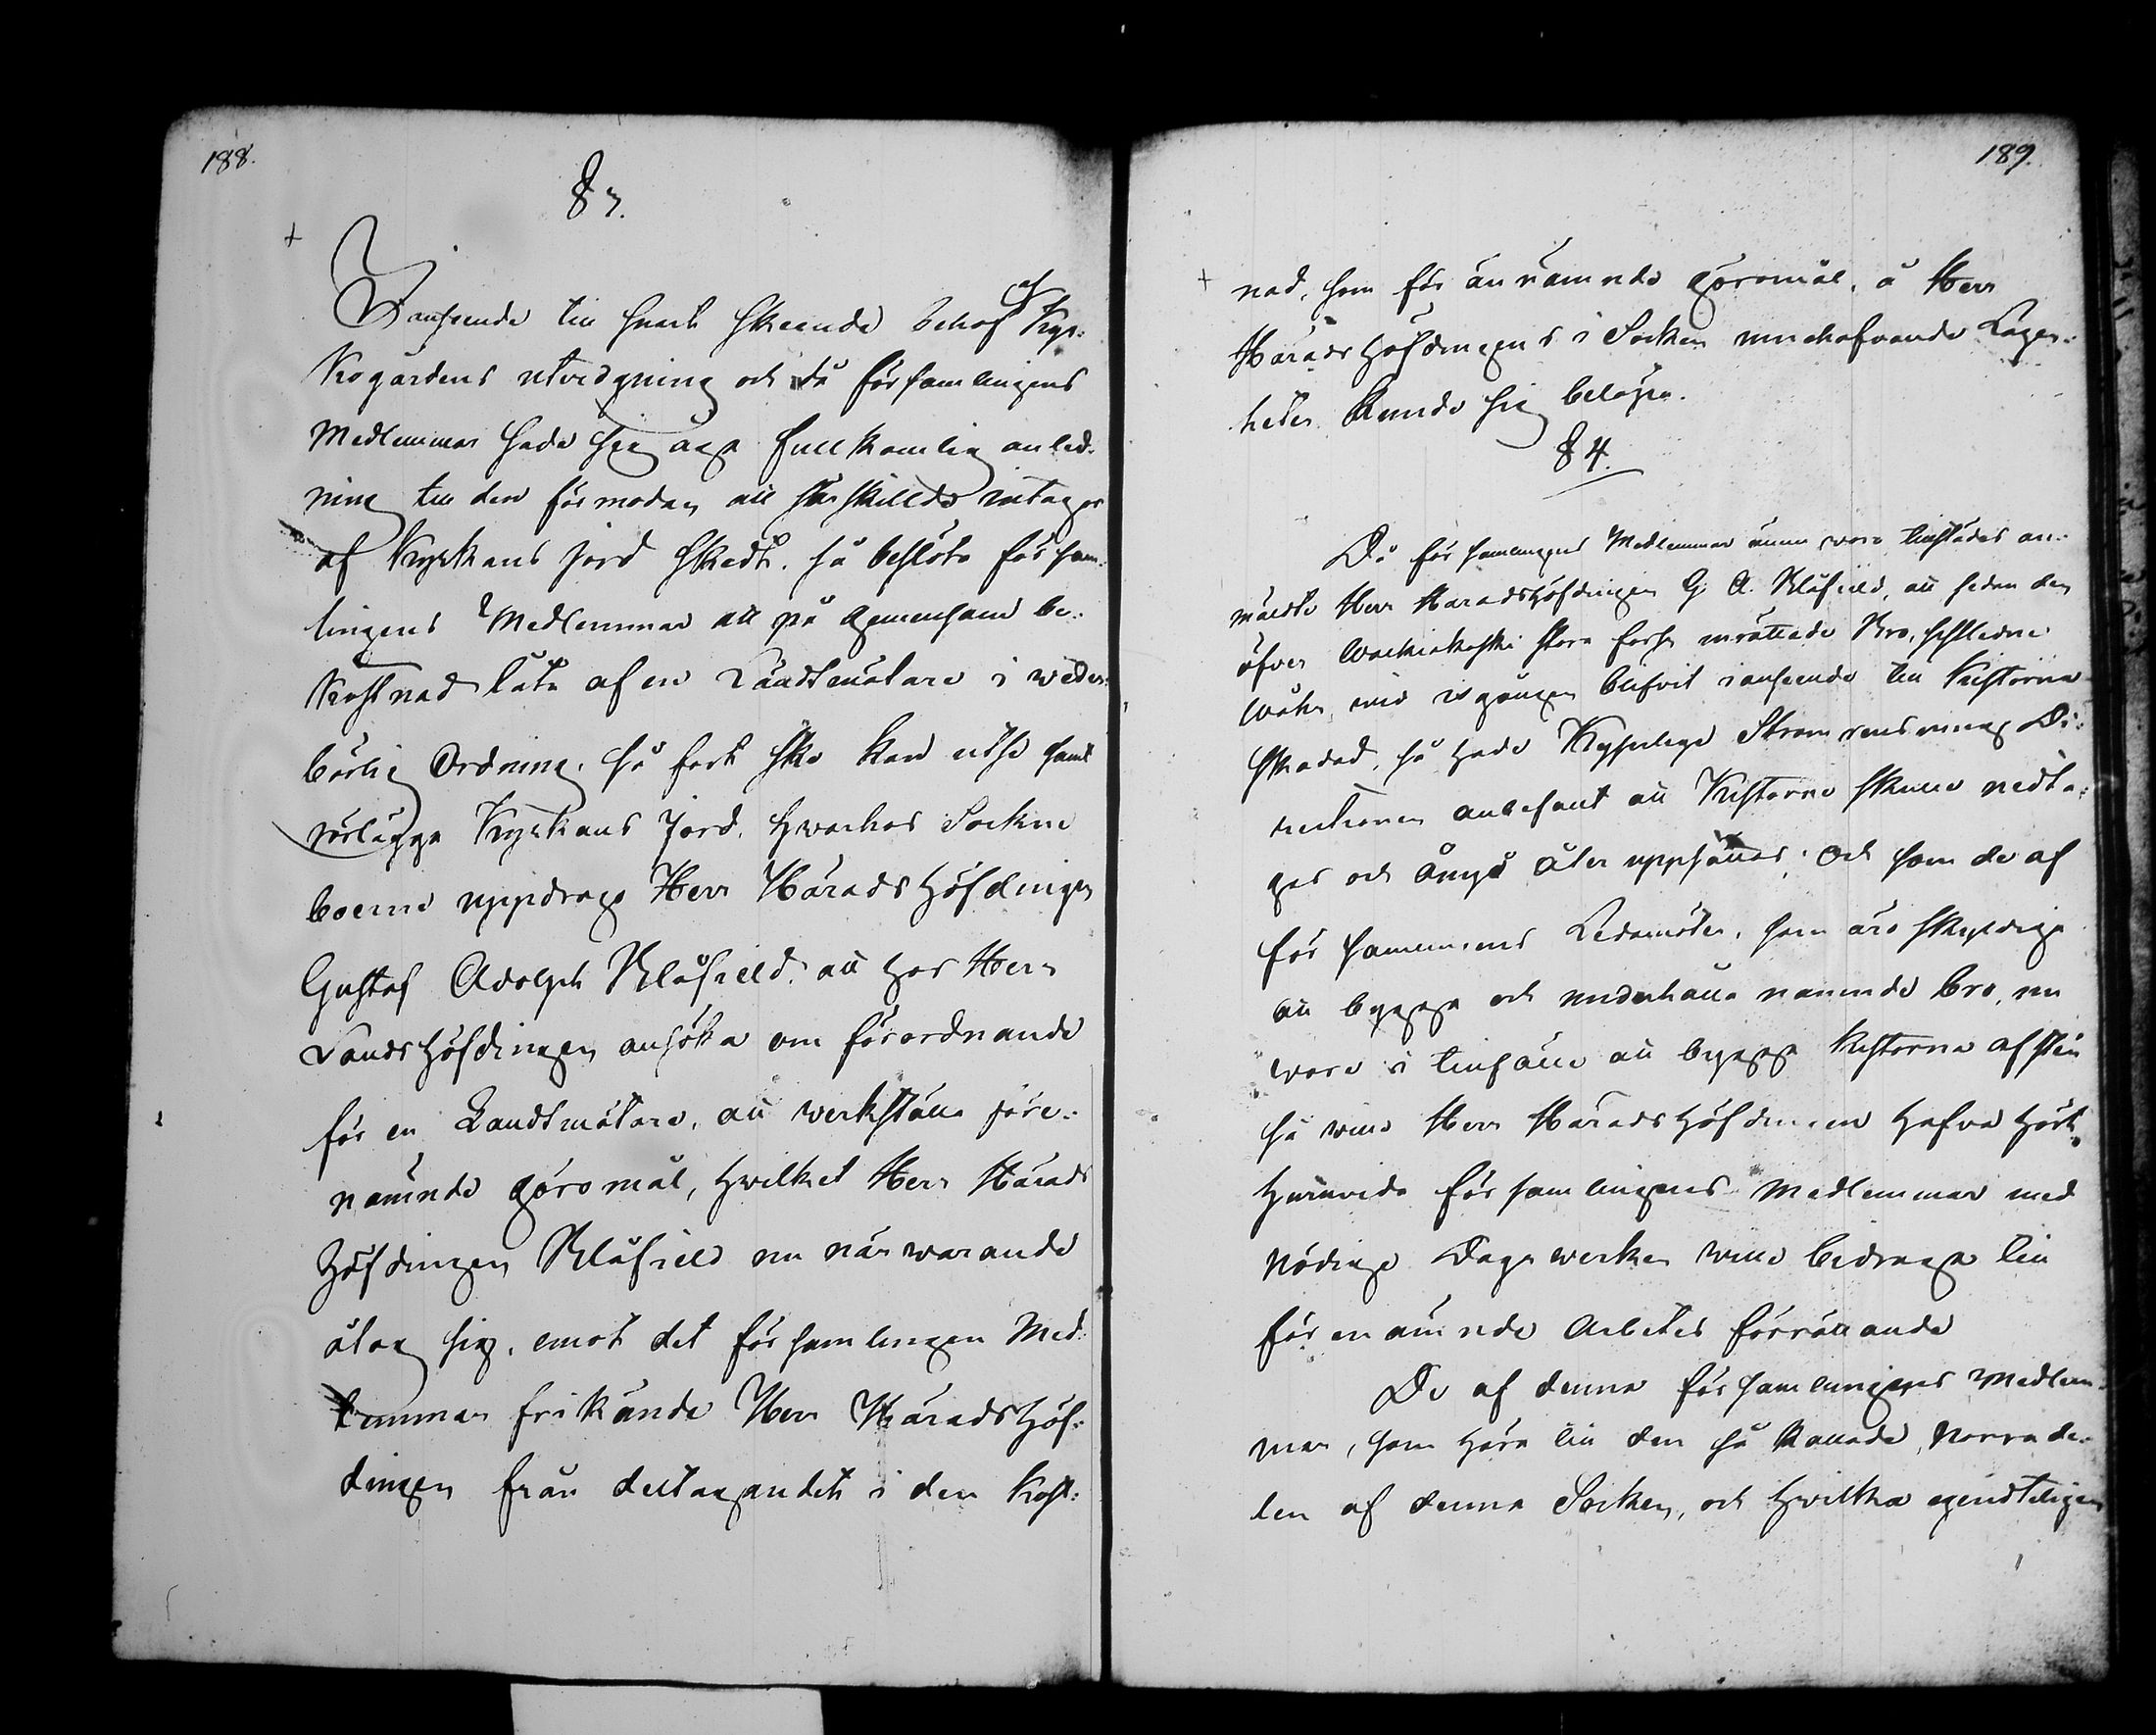 188.
§ 3.
I anseende till snart skeende behof af Kyr-
kogårdens utvidgning och då församlingens
Medlemmar sade sig äga fullkomlig anled-
ning till den förmodan att särskillde intagor
af Kyrkans jord skedt, så beslöto försam-
lingens Medlemmar att på gemensam be-
kostnad låta af en Landtmätare i weder-
börlig Ordning, så fort ske kan utse samt
rörlägga Kyrkans Jord, hwarhos Sockne
boerne uppdrogo Herr HäradsHöfdingen
Gustaf Adolph Blåfield, att hos Herr
LandsHöfdingen ansöka om förordnande
för en Landtmätare, att werkställa före-
nämnde göromål, hwilket Herr Härads
Höfdingen Blåfield nu närwarande
åtog sig, emot det församlingen Med-
lemmar frikände Herr HäradsHöf-
dingen från deltagandet i den kost-
189.
nad, som för annämnde göromål, å Herr
HäradsHöfdingens i Socken innehafvande Lägen-
heter kunde sig belöpa.
§ 4.
Då församlingens Medlemmar ännu woro tillstädes an-
mälte Herr HäradsHöfdingen G. A. Blåfield, att sedan den
öfver Wackiakoski stora fors inrättade Bro, sistledne
wåhr, wid isgången blifvit i anseende till Kistorne
skadad, så hade Kejserlige Strömrensnings Di-
rectionen anbefalt att Kistorne skulle nedta-
gas och ånyo åter uppsättas; Och som de af
församlingens Ledamöter, som äro skyldige
att bygga och underhålla nämnde bro, nu
woro i tillfälle att bygga Kistorna af sten
så wille Herr HäradsHöfdingen hafva hört
huruvida församlingens Medlemmar med
nödige Dagswerken wille bidraga till
förenämnde Arbetes förrättande
De af denna församlingens Medlem-
mar, som höra till den så kallade, Norra de-
len af denna Socken, och hwilka egendteligen